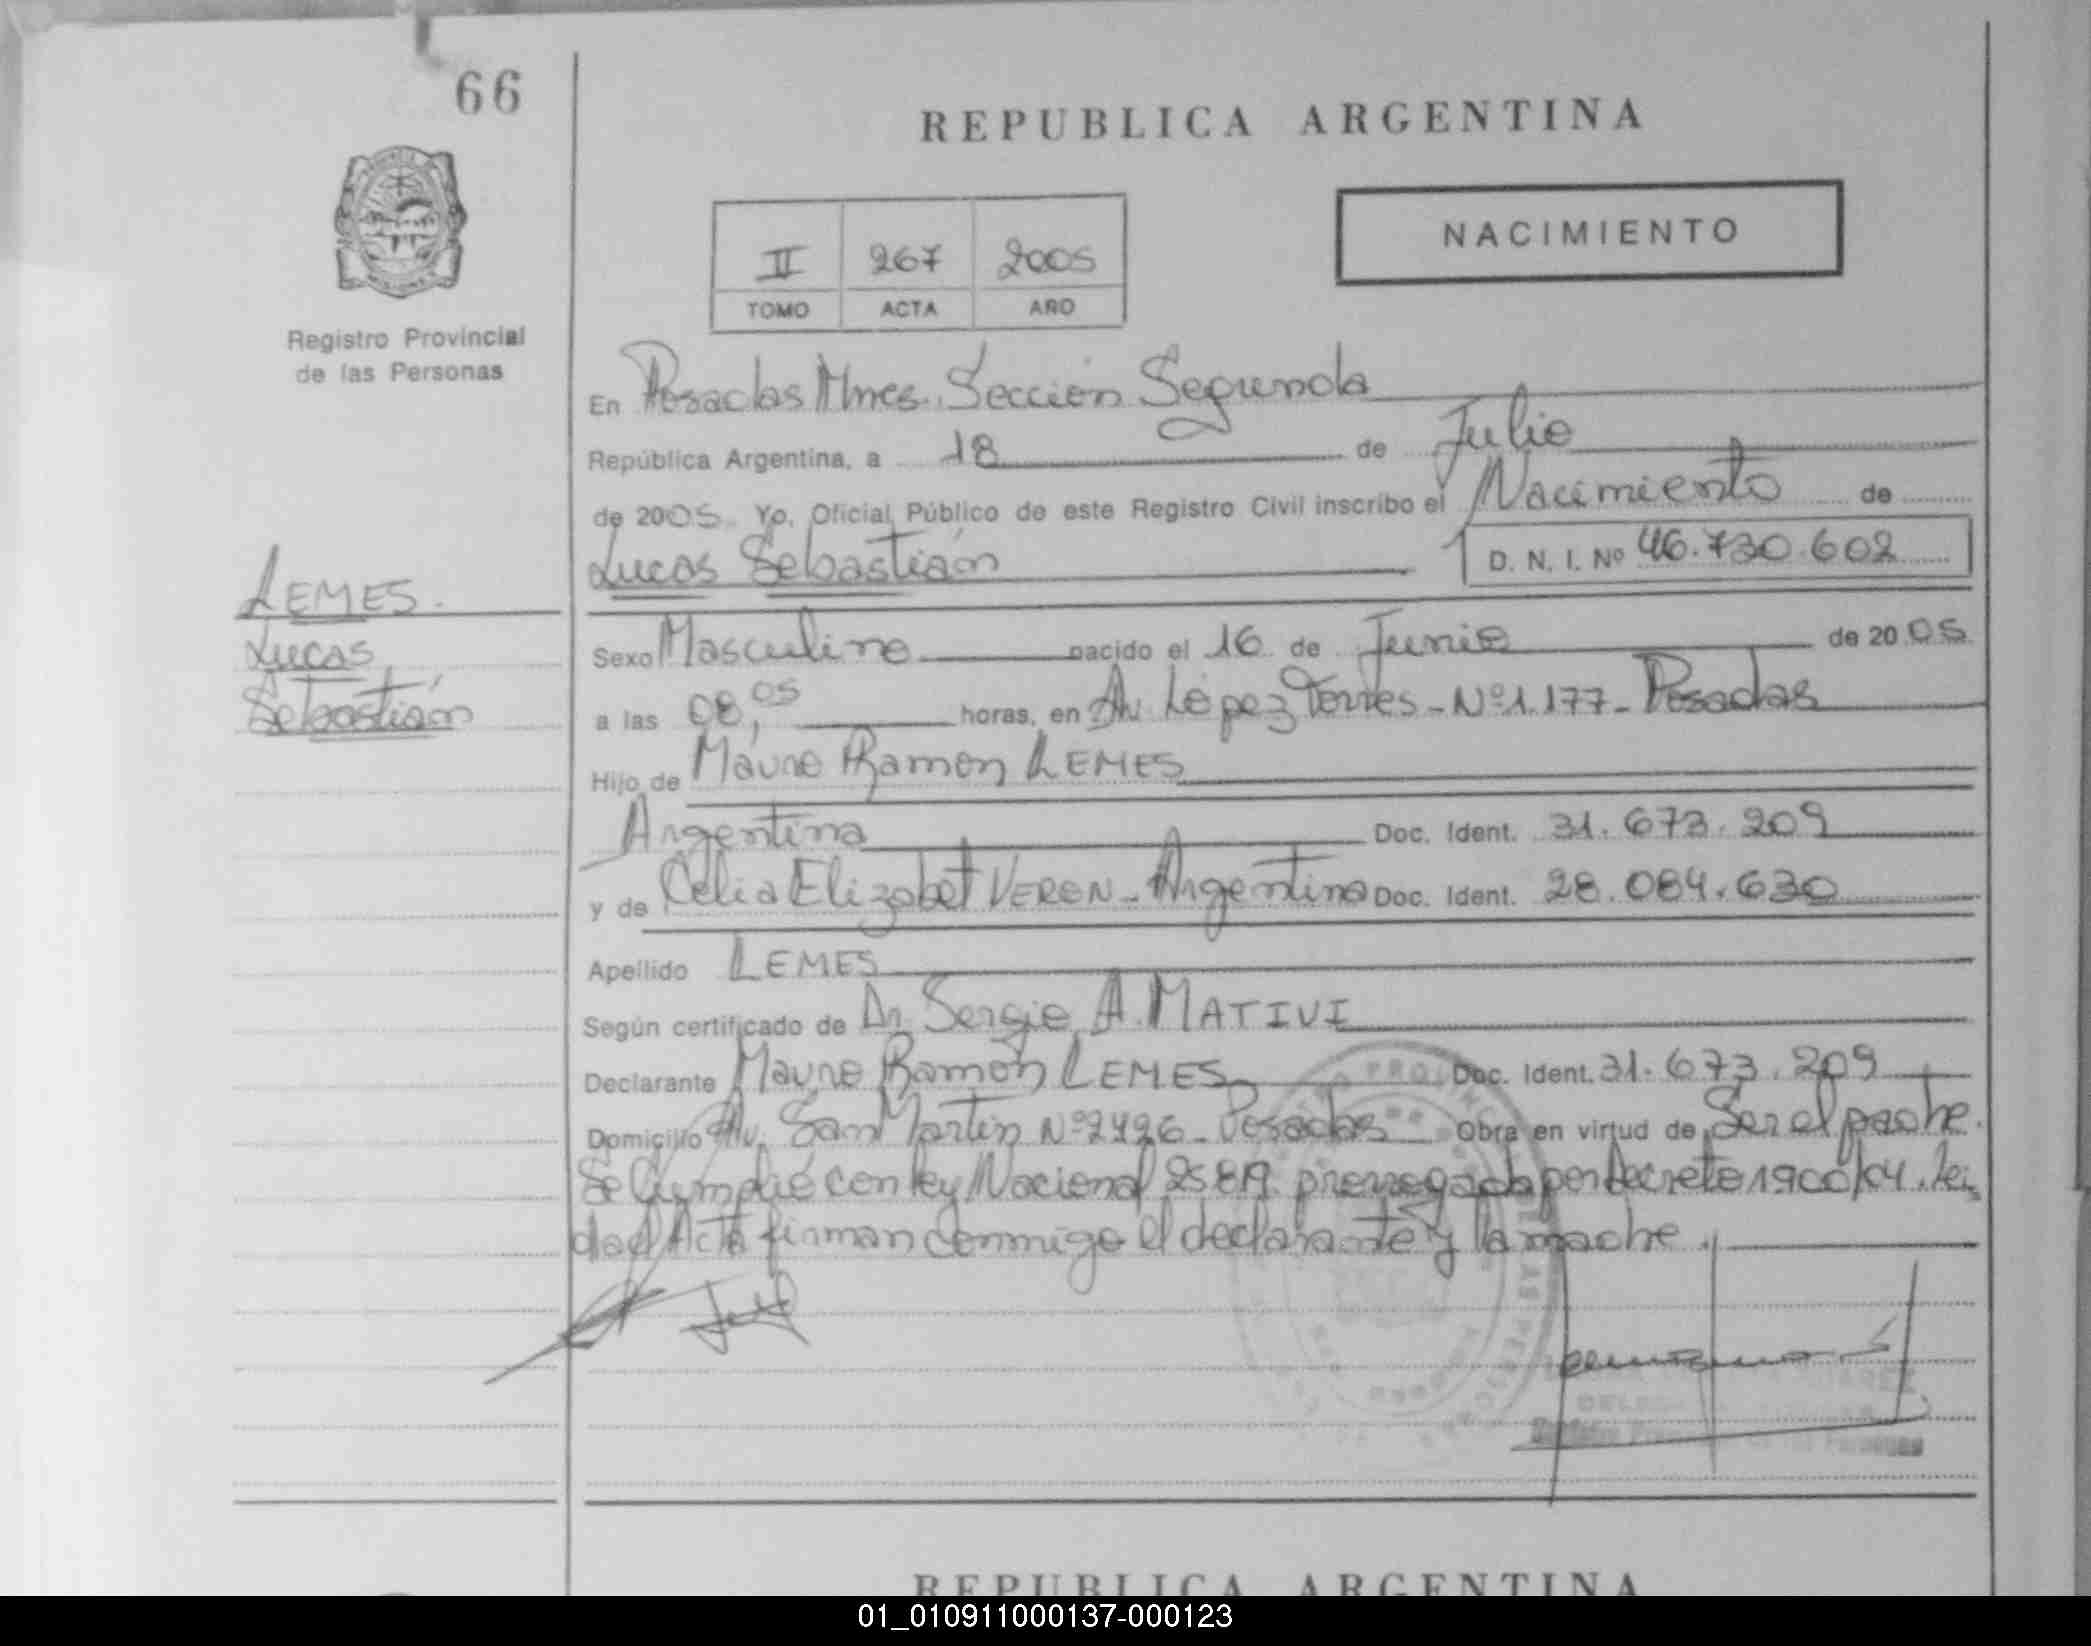 66
REPUBLICA ARGENTINA
NACIMIENTO
II 267 2005
TOMO ACTA AÑO
Registro Provincial
de las Personas
En Posadas Mnes. Sección Segunda
República Argentina, a 18 de Julio
de 2005 Yo, Oficial Público de este Registro Civil inscribo el Nacimiento de
Lucas Sebastián D. N. I. Nº 46.730.602
LEMES.
Lucas
Sebastián
Sexo Masculino nacido el 16 de Junio de 2005
a las 08,05 horas, en Av. López Torres - Nº 1.177 - Posadas
Hijo de Mauro Ramon LEMES
Argentina Doc. Ident. 31.673.209
y de Celia Elizabet VERON - Argentina Doc. Ident. 28.084.630
Apellido LEMES
Según certificado de Dr. Sergio A. MATIVI
Declarante Mauro Ramón LEMES Doc. Ident. 31.673.209
Domicilio Av. San Martin Nº 2426 - Posadas Obra en virtud de Ser el padre.
Se Cumplió con ley Nacional 25819 prorrogada por decreto 1900/04. lei
da el Acta firman conmigo el declarante y la madre.
REPUBLICA ARGENTINA
01_010911000137-000123